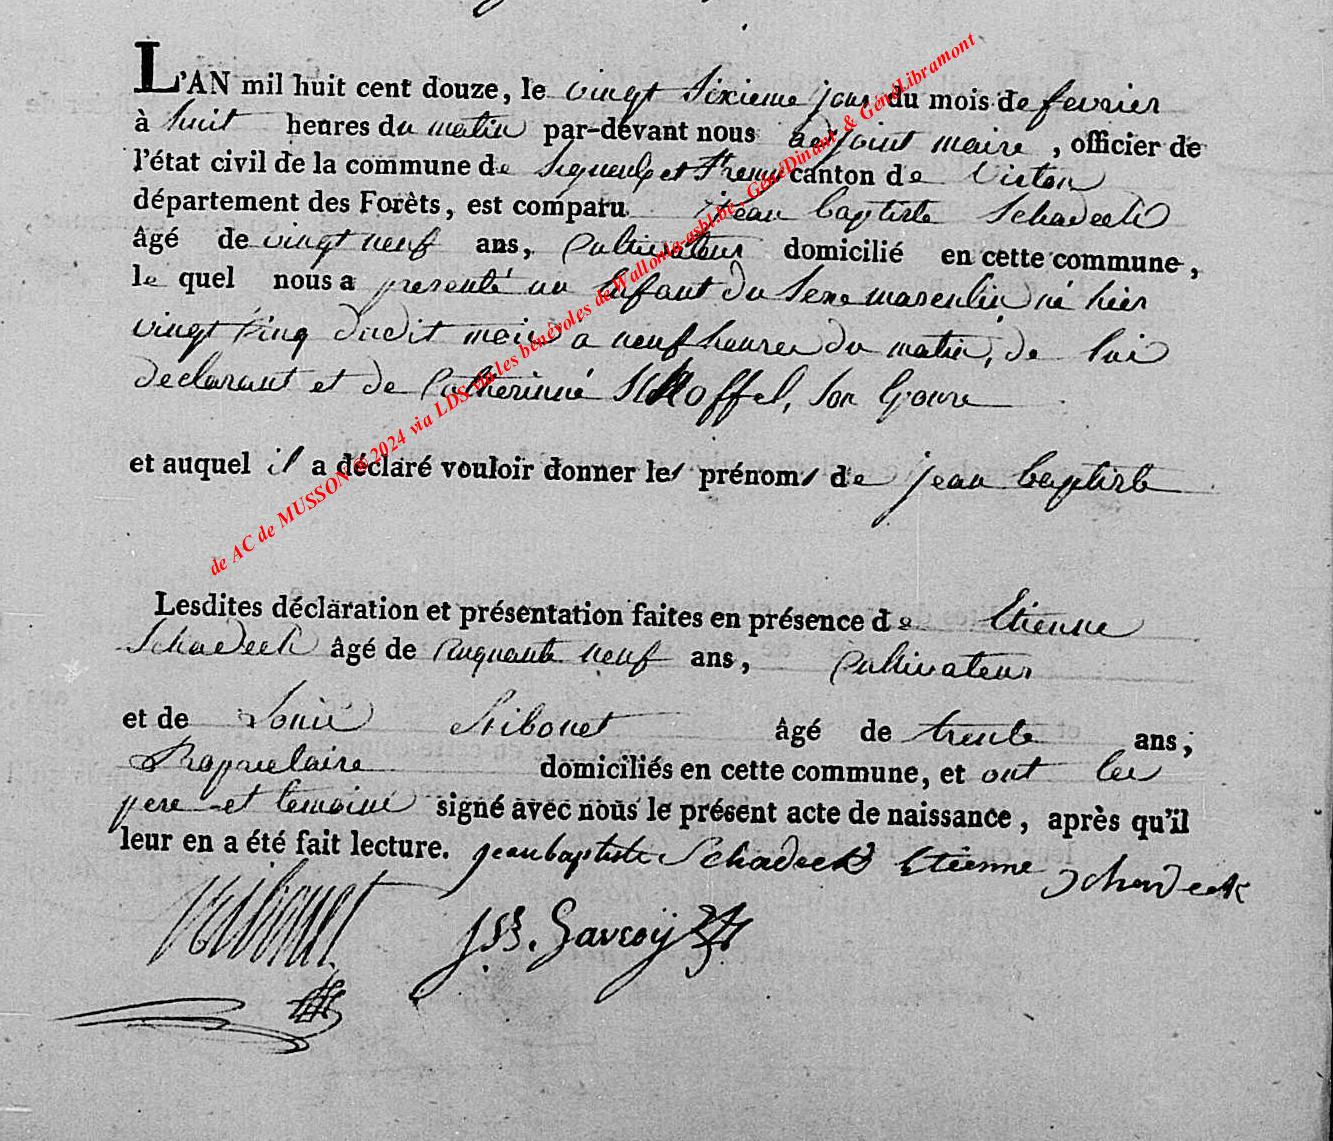 L'AN mil huit cent douze, le vingt sixieme jour du mois de fevrier
à huit heures du matin par-devant nous adjoint maire, officier de
l'état civil de la commune de Signeulx et canton de Virton
département des Forêts, est comparu jean baptiste Schadeck
âgé de vingt neuf ans, Cultivateur domicilié en cette commune,
le quel nous a presenté un Enfant du Sexe masculin né hier
vingt Cinq dudit mois à neuf heures du matin, de lui
declarant et de Catherinne Stoffel, Son Epouse
et auquel il a déclaré vouloir donner les prénoms de jean baptiste
Lesdites déclaration et présentation faites en présence de Etienne
Schadeck âgé de Cinquante neuf ans, Cultivateur
et de Louis âgé de trente ans,
Propriétaire domiciliés en cette commune, et ont les
pere et temoins signé avec nous le présent acte de naissance, après qu'il
leur en a été fait lecture. jean baptiste Schadeck Etienne Schadeck
de AC de MUSSON @ 2024 via LDS via les bénévoles de Wallonia-asbl.be - GénéDinant & GénéLibramont